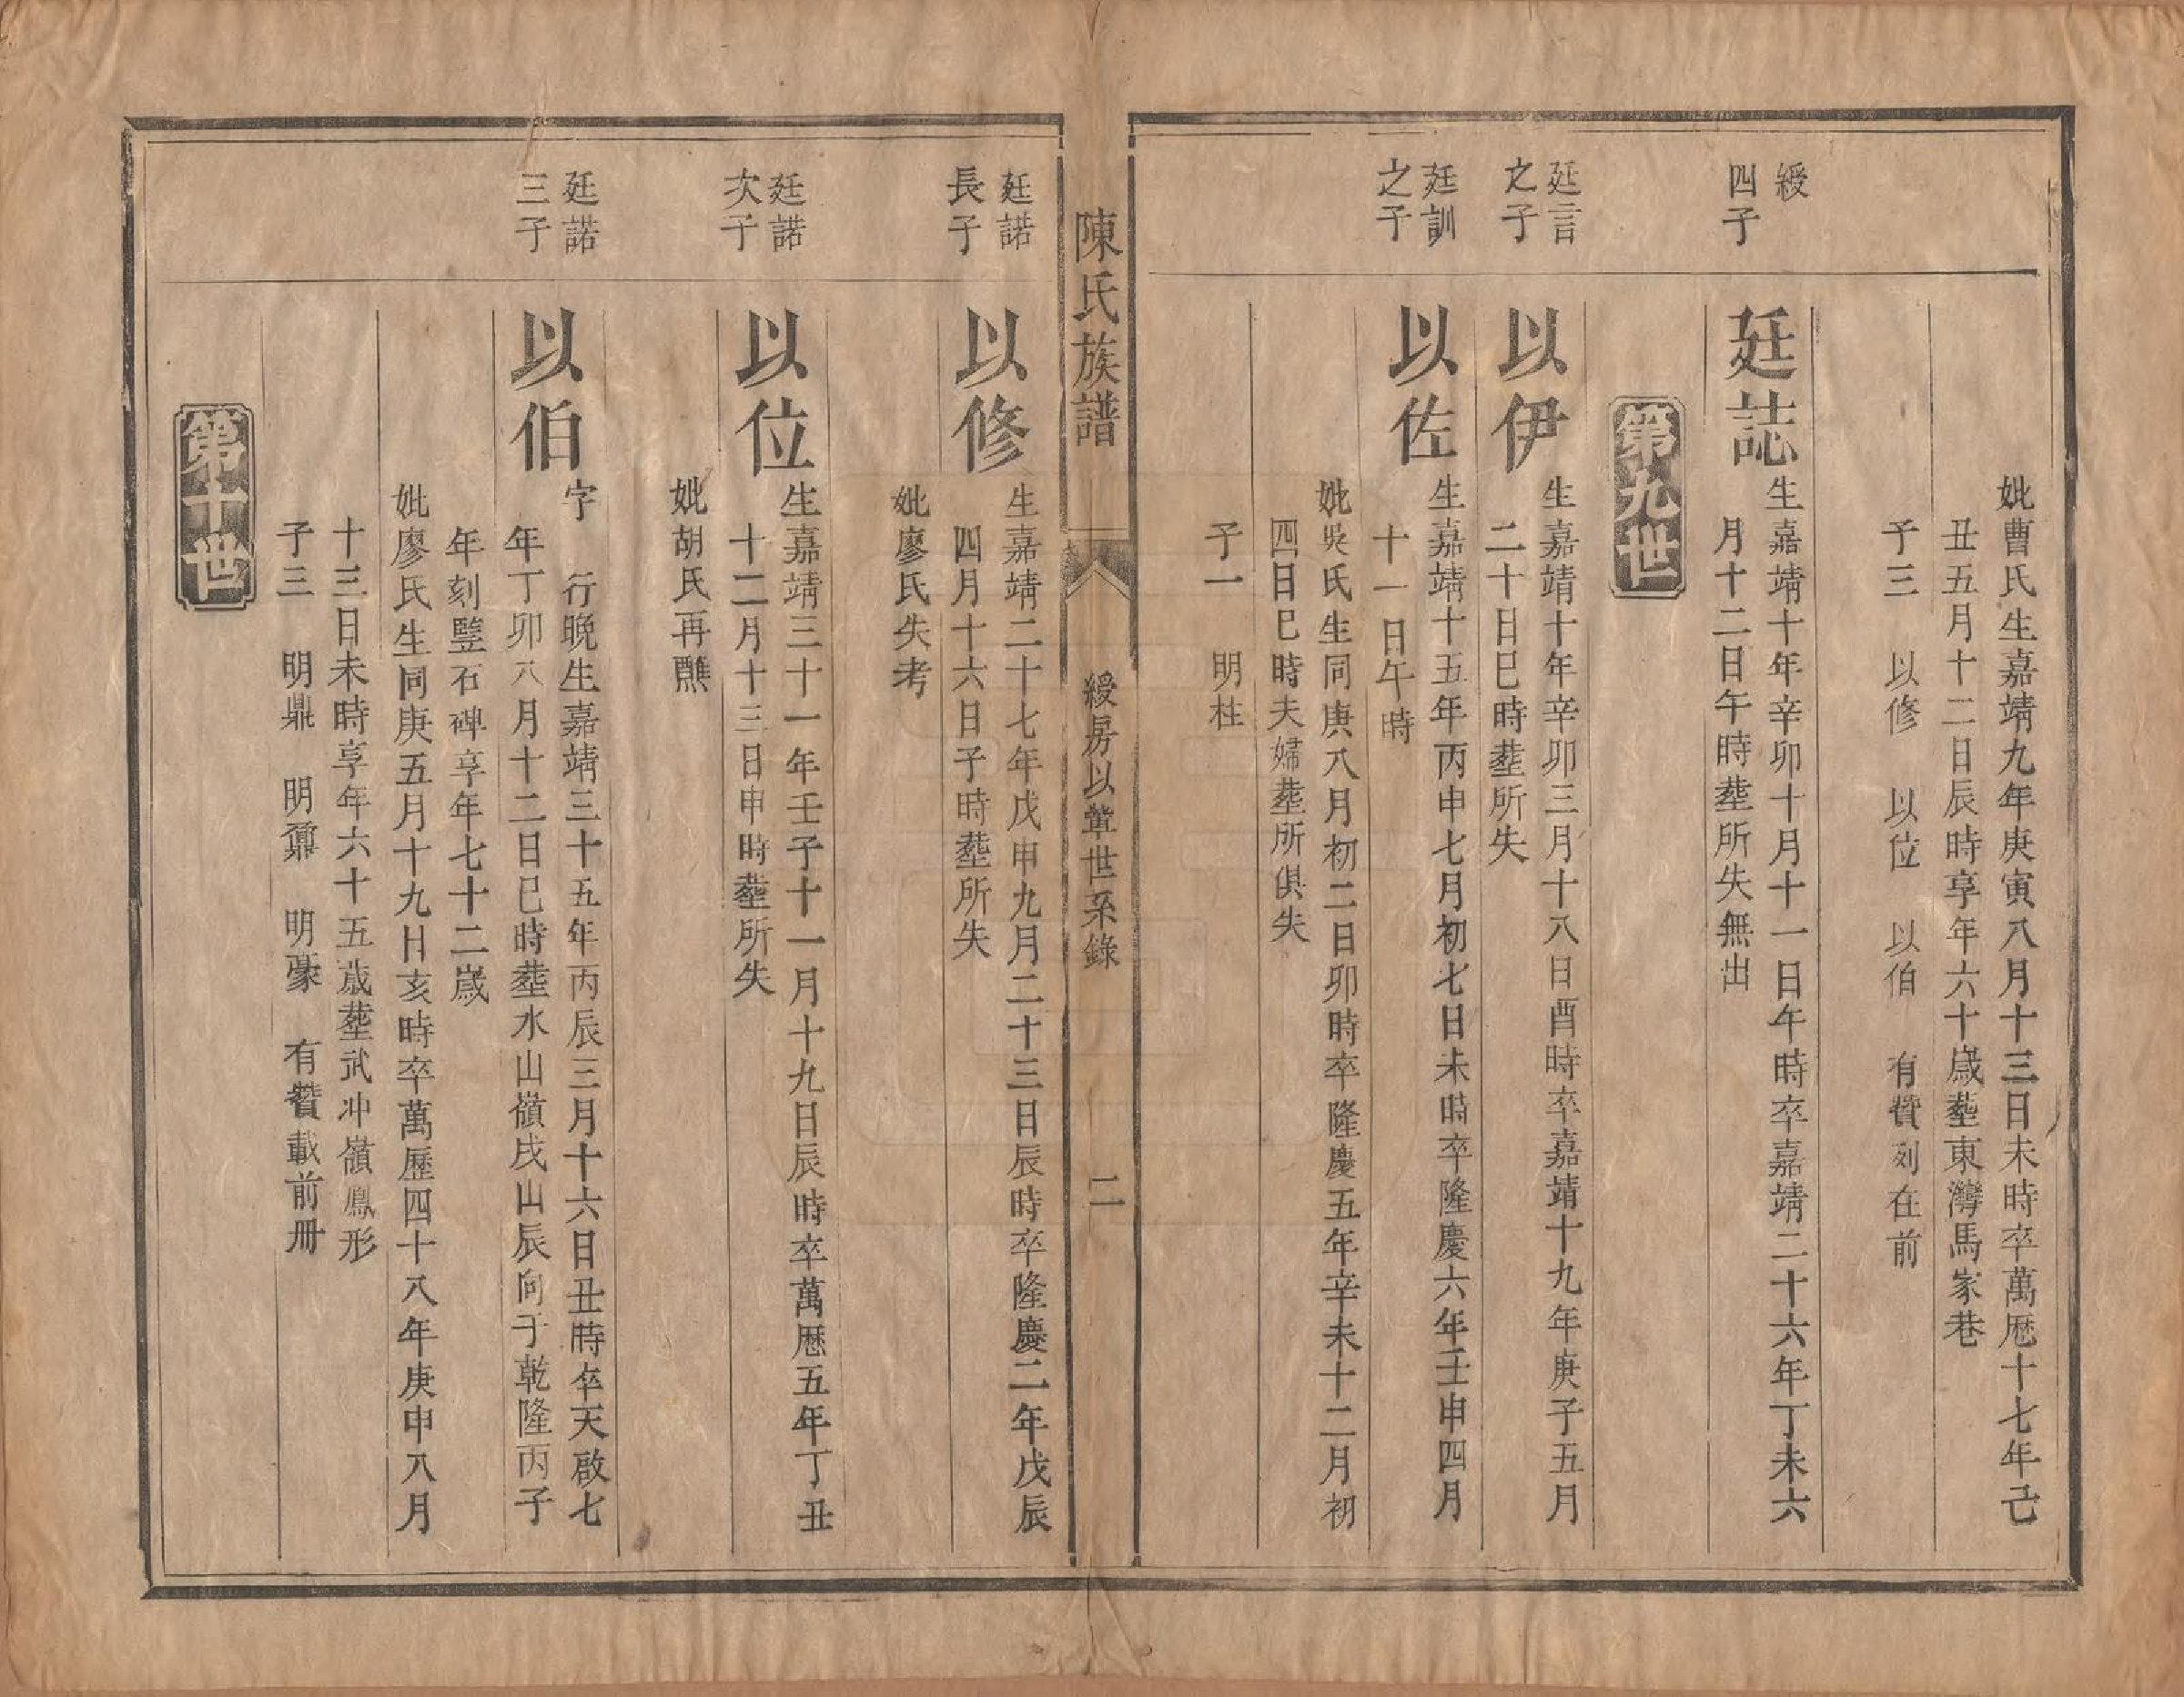 妣曹氏生嘉靖九年庚寅八月十三日未時卒萬厯十七年己
丑五月十二日辰時享年六十歲塟東灣馬家巷
子三　以修　以位　以伯　有贊列在前
綬
四子
廷誌
生嘉靖十年辛卯十月十一日午時卒嘉靖二十六年丁未六
月十二日午時塟所失無出
第九世
廷言
之子
以伊
生嘉靖十年辛卯三月十八日酉時卒嘉靖十九年庚子五月
二十日巳時塟所失
廷訓
之子
以佐
生嘉靖十五年丙申七月初七日未時卒隆慶六年壬申四月
十一日午時
妣吳氏生同庚八月初二日卯時卒隆慶五年辛未十二月初
四日巳時夫婦塟所俱失
子一　明柱
陳氏族譜
綬房以軰世系錄
二
廷諾
長子
以修
生嘉靖二十七年戊申九月二十三日辰時卒隆慶二年戊辰
四月十六日子時塟所失
妣廖氏失考
廷諾
次子
以位
生嘉靖三十一年壬子十一月十九日辰時卒萬厯五年丁丑
十二月十三日申時塟所失
妣胡氏再醮
廷諾
三子
以伯
字　行晚生嘉靖三十五年丙辰三月十六日丑時卒天啟七
年丁卯八月十二日巳時塟水山嶺戌山辰向于乾隆丙子
年刻豎石碑享年七十二歲
妣廖氏生同庚五月十九日亥時卒萬歷四十八年庚申八月
十三日未時享年六十五歲塟武冲嶺鳳形
子三　明鼎　明鼐　明豪　有贊載前冊
第十世